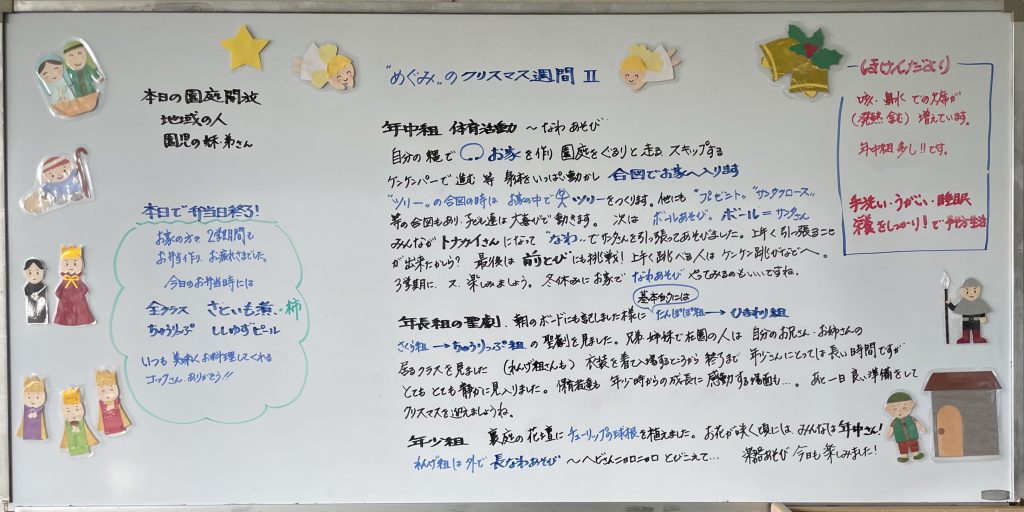 "めぐみ"のクリスマス週間 II
本日の園庭開放
地域の人
園児の妹・弟さん
本日で弁当日終了!
お家の方々 2学期間も
お弁当作り お疲れさまでした。
今日のお弁当時には
全クラス さといも煮・柿
ちゅうりっぷ ししゆずピール
いつも美味しくお料理してくれる
コックさん ありがとう!!
年中組 体育活動 〜なわあそび
自分の縄で お家を作り 園庭をぐるりと走る スキップする
ケンケンパーで進む 等 身体をいっぱい動かし 合図でお家へ入ります
"ツリー"の合図の時は お家の中で ツリーをつくります。他にも "プレゼント" "サンタクロース"
等の合図もあり、子ども達は大喜びで動きます。 次は ボールあそび。 ボール=サンタさん
みんなが トナカイさんになって "なわ"でサンタさんを引っ張ってあそびました。上手く引っ張ること
が出来たかしら? 最後は 前とびにも挑戦! 上手く跳べる人は ケンケン跳びなどへ。
3学期に、又、楽しみましょう。 冬休みにお家で なわあそび やってみるのもいいですね。
基本的には
年長組の聖劇 、朝のボードにも記しました様に たんぽぽ組→ひまわり組
さくら組→ちゅうりっぷ組 の聖劇を見ました。兄弟姉妹で在園の人は 自分のお兄さん・お姉さんの
居るクラスを見ました (れんげ組さんも) 衣装を着け入場するところから 終了まで 年少さんにとっては長い時間ですが
とても とても静かに見入りました。 保育者達も 年少時からの成長に 感動する場面も…。 あと一日 良い準備をして
クリスマスを迎えましょうね。
年少組 裏庭の花壇に チューリップの球根を植えました。お花が咲く頃には、みんなは年中さん!
れんげ組は外で 長なわあそび 〜ヘビさんニョロニョロ とびこえて… 楽器あそび 今日も楽しみました!
ほけんだより
咳・鼻水 での欠席が
(発熱含む) 増えています。
年中組 多し!! です。
手洗い・うがい・睡眠
をしっかり! で 予防生活